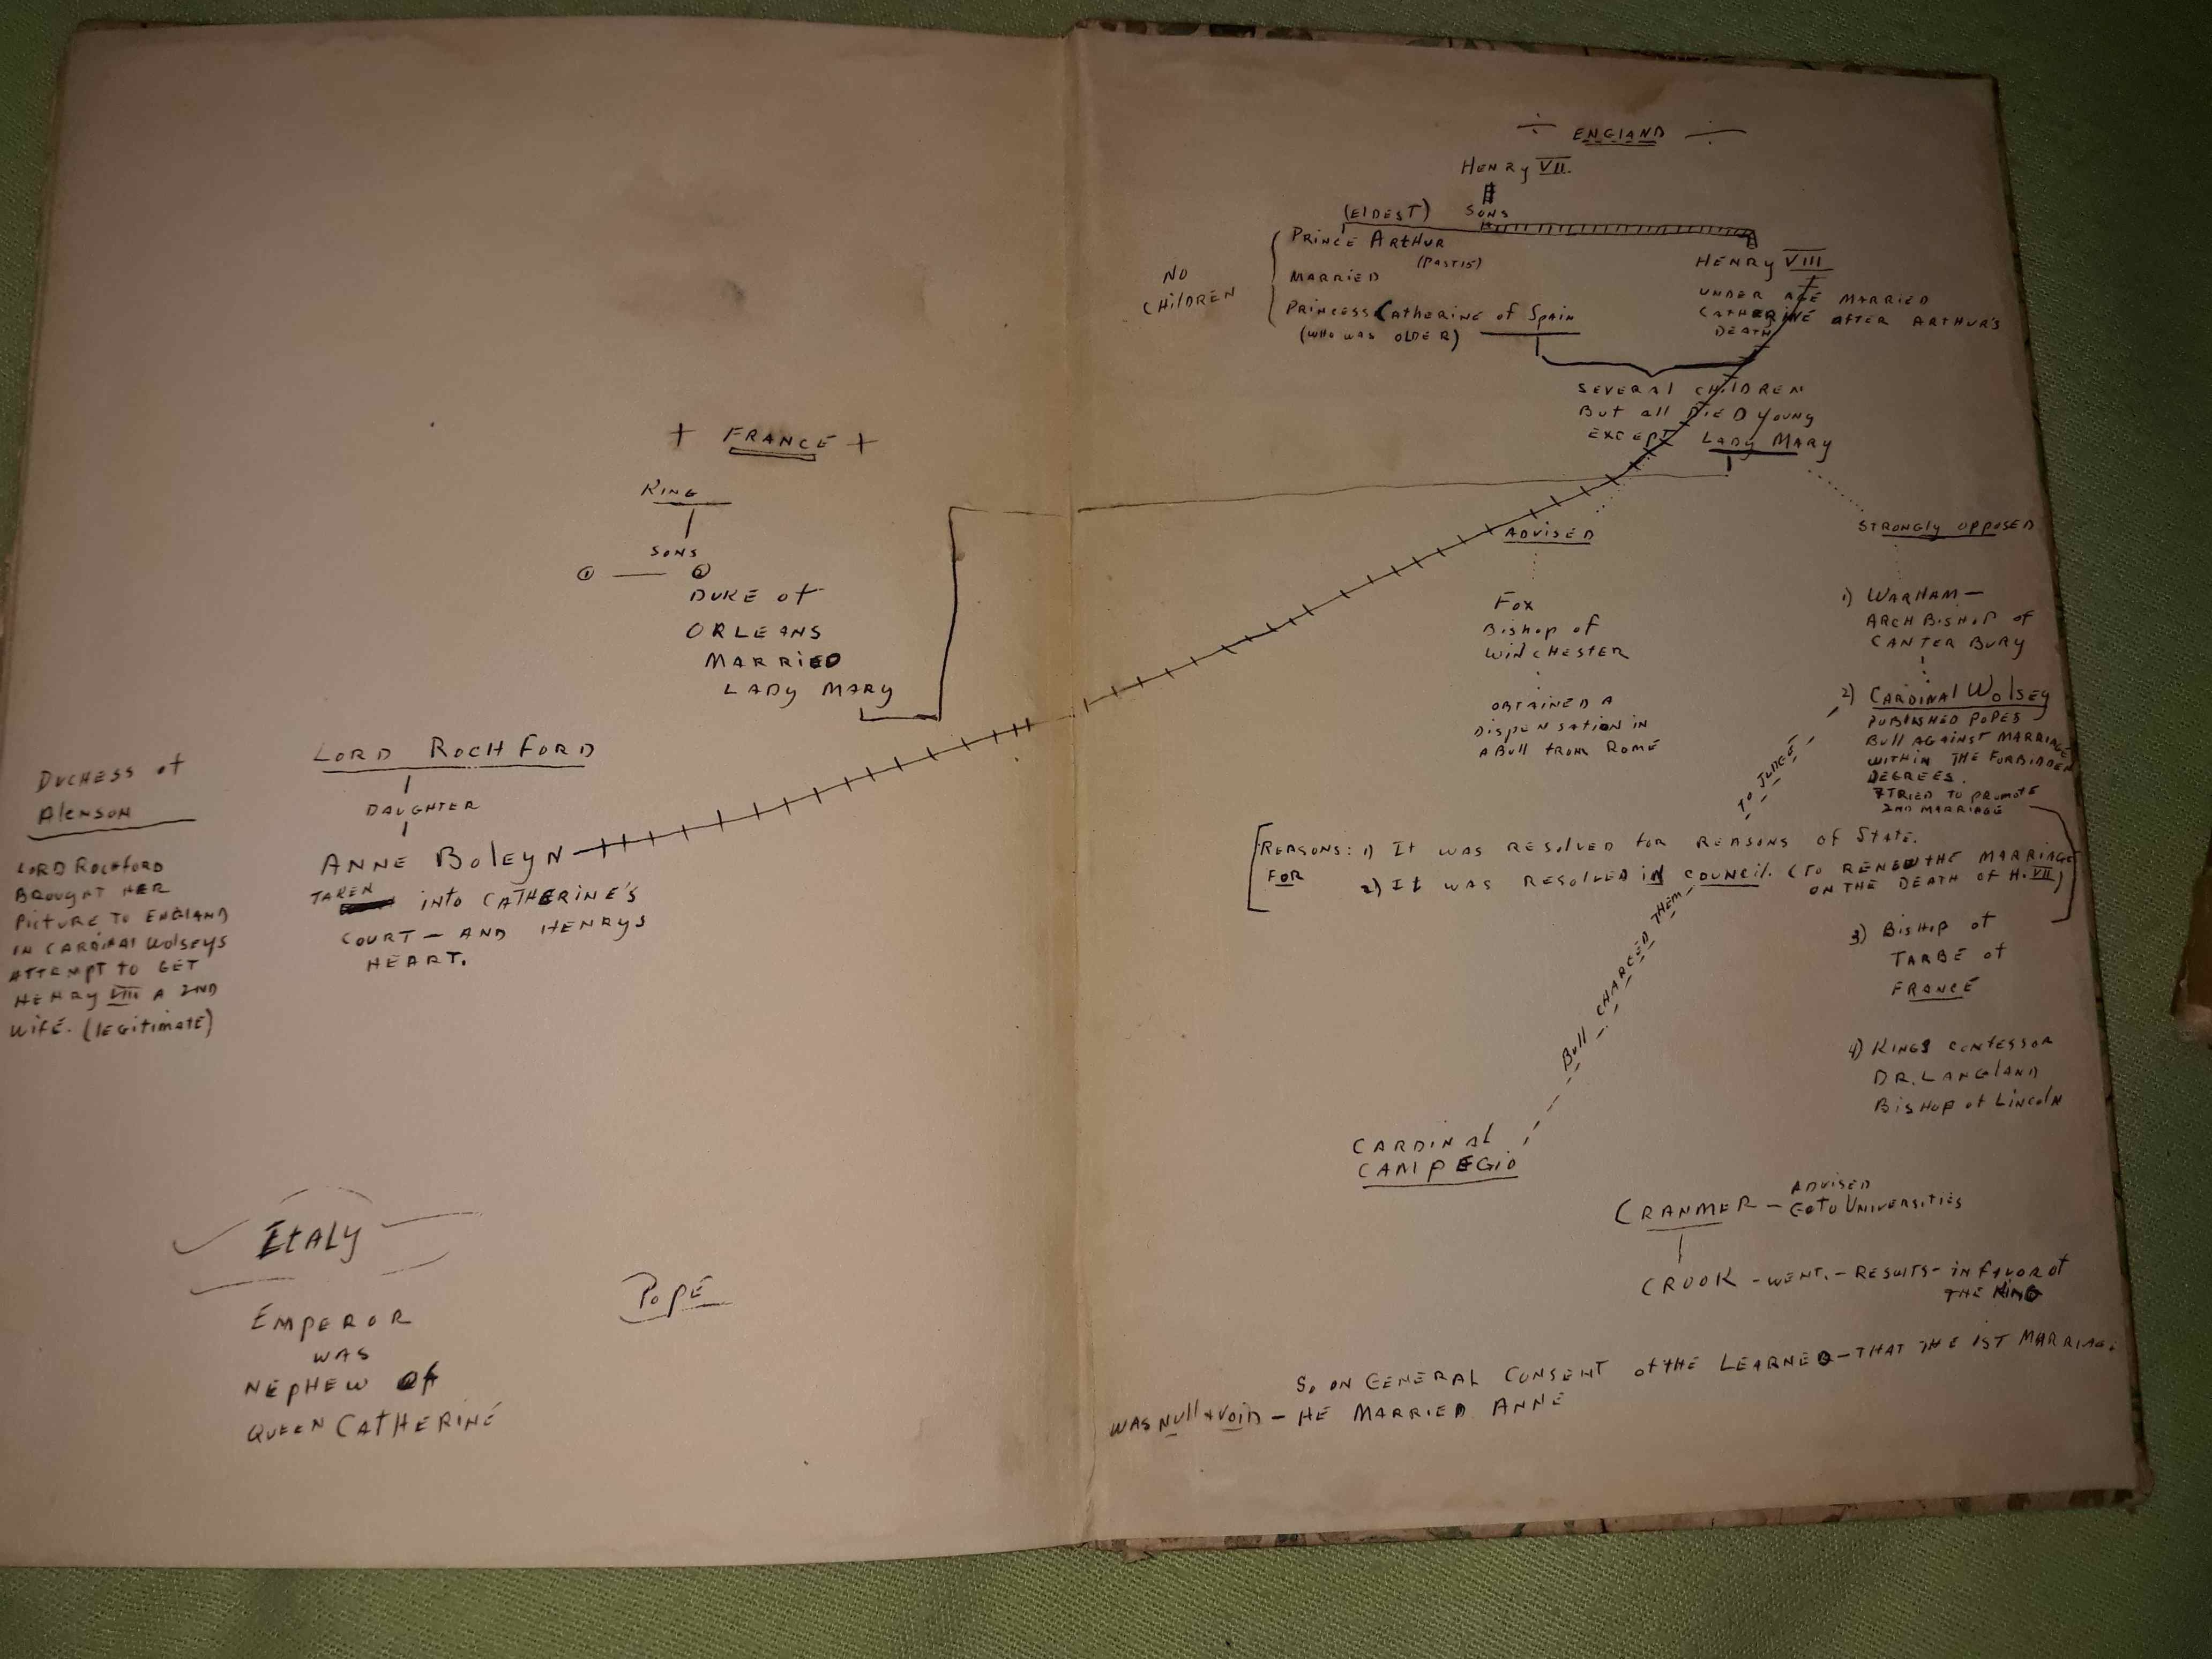 + FRANCE +
KING
SONS
① — ②
DUKE of
ORLEANS
MARRIED
LADY MARY
LORD ROCHFORD
DAUGHTER
ANNE BOLEYN
TAKEN INTO CATHERINE'S
COURT - AND HENRYS
HEART.
DUCHESS of
AlENSON
LORD ROCHFORD
BROUGHT HER
PICTURE TO ENGLAND
IN CARDINAL WOLSEYS
ATTEMPT TO GET
HENRY VIII A 2ND
WIFE. (LEGITIMATE)
ITALY
EMPEROR
WAS
NEPHEW OF
QUEEN CATHERINE
POPE
÷ ENGLAND ÷
HENRY VII.
SONS
(ELDEST)
PRINCE ARTHUR
(PAST 15)
MARRIED
PRINCESS CATHERINE of SPAIN
(WHO WAS OLDER)
NO
CHILDREN
HENRY VIII
UNDER AGE MARRIED
CATHERINE AFTER ARTHUR'S
DEATH
SEVERAL CHILDREN
BUT all DIED YOUNG
EXCEPT LADY MARY
ADVISED
FOX
BISHOP of
WINCHESTER
OBTAINED A
DISPENSATION IN
A BULL FROM ROME
STRONGLY OPPOSED
1) WARHAM —
ARCH BISHOP of
CANTER BURY
2) CARDINAL WOLSEY
PUBLISHED POPES
BULL AGAINST MARRIAGE
WITHIN THE FORBIDDEN
DEGREES.
TRIED TO PROMOTE
2ND MARRIAGE
[REASONS: 1) IT WAS RESOLVED FOR REASONS of STATE.
FOR 2) IT WAS RESOLVED IN COUNCIL. (TO RENEW THE MARRIAGE
ON THE DEATH OF H. VII)]
3) BISHOP of
TARBE of
FRANCE
4) KINGS CONFESSOR
DR. LANGLAND
BISHOP of LINCOLN
CARDINAL
CAMPEGIO
BULL CHARGED THEM TO JUDGE
CRANMER - ADVISED
GO TO UNIVERSITIES
CROOK - WENT. - RESULTS - IN FAVOR of
THE KING
SO ON GENERAL CONSENT of THE LEARNED - THAT THE 1ST MARRIAGE
WAS NULL & VOID - HE MARRIED ANNE